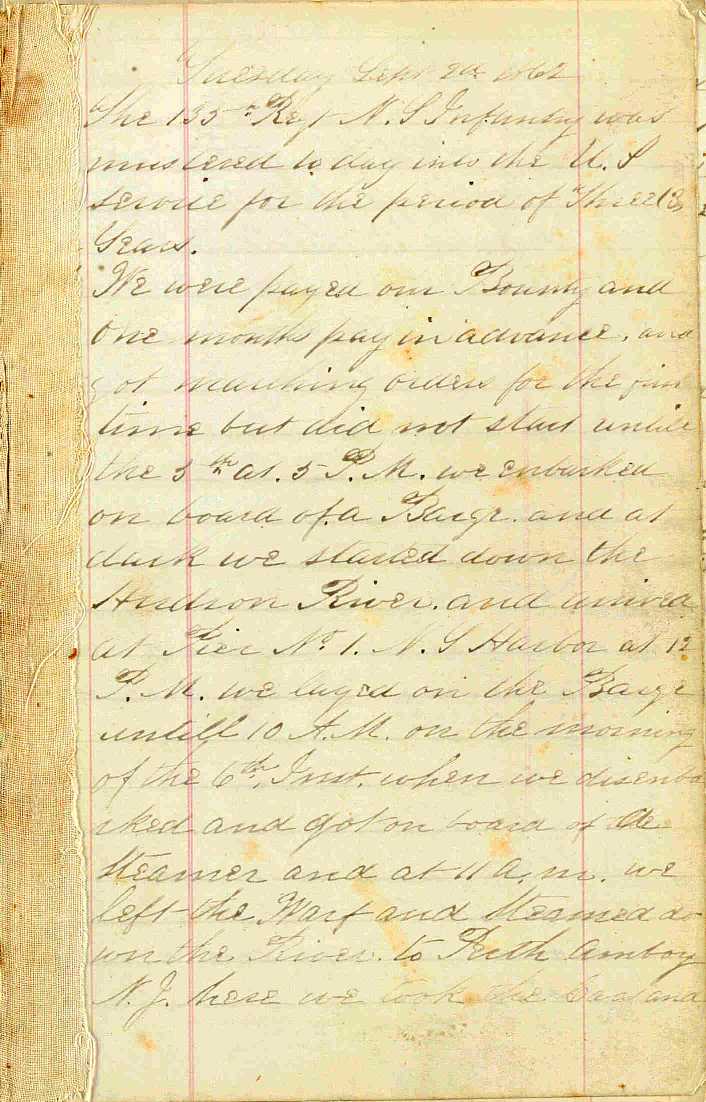 Tuesday Sept 2d 1862
The 135th Regt N.Y Infantry was
mustered to day into the U.S
service for the period of Three (3)
Years.
We were payed our Bounty and
one months pay in advance, and
got marching orders for the firs
time but did not start untill
the 5th at 5 P.M. we enbarked
on board of a Barge. and at
dark we started down the
Hudson River. and arrived
at Pier No 1. N.Y Harbor at 12
P.M. we layed on the Barge
untill 10 A.M. on the morning
of the 6th Inst. when we disenba
rked and got on board of a
Steamer and at 11 a.m. we
left the Warf and Steamed do
wn the River. to Peth Amboy
N.J. here we took the Cars and